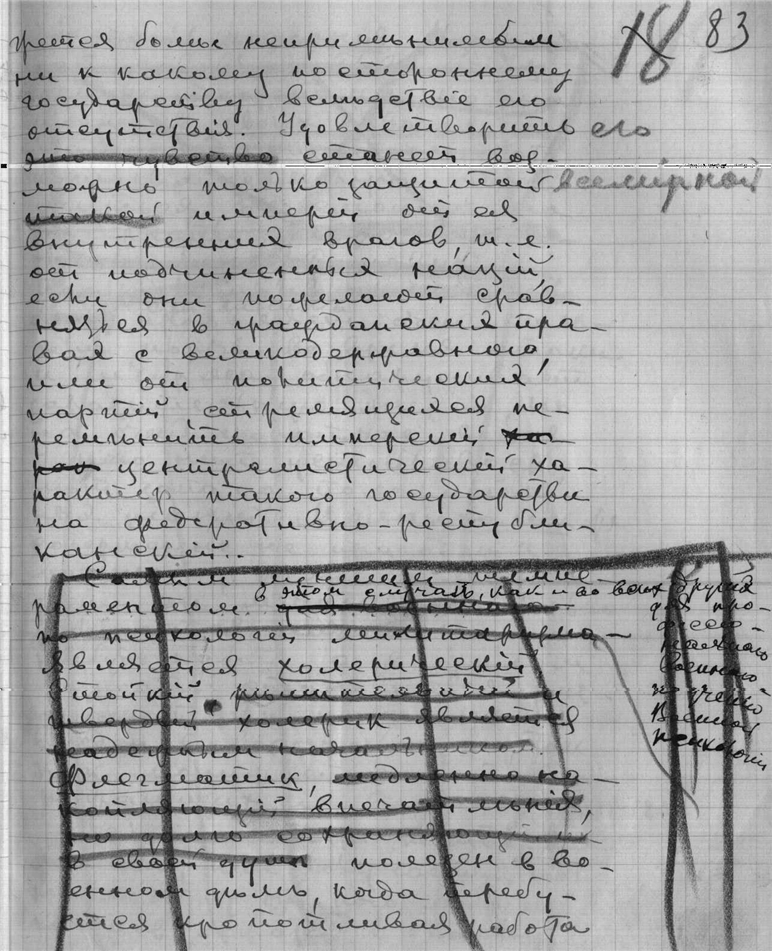 18 83
жется больше непримѣнимымъ
ни к какому постороннему
государству вслѣдствіе его
отсутствія. Удовлетворить его
это чувство станет воз-
можно только защитой всемірной
такой имперіи от ея
внутренних врагов, т.е.
от подчиненных націй,
если они пожелают срав-
няться в гражданских пра-
вах с великодержавною,
или от политических
партій, стремящихся пе-
ремѣнить имперскій ха-
рак централистическій ха-
рактер такого государства
на федеративно-республи-
канскій..
Самым лучшим темпе-
раментом в этом случаѣ, как и во всех других
по психологіи милитаризма
является холерическій
Стойкій рѣшительный и
твердый холерик является
надежным начальником.
Флегматик, медленно на-
копляющій впечатлѣнія,
но долго сохраняющій их
в своей душѣ полезен в во-
енном дѣлѣ, когда требу-
ется кропотливая работа
для про-
фессіо-
нальнаго
военнаго
Военной
психологіи